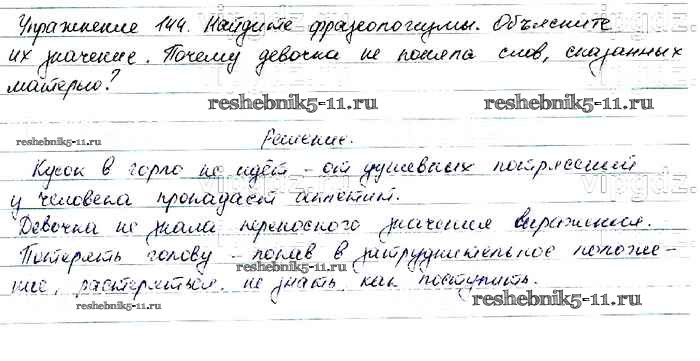 Упражнение 144. Найдите фразеологизмы. Объясните
их значение. Почему девочка не поняла слов, сказанных
матерью?
reshebnik5-11.ru reshebnik5-11.ru
reshebnik5-11.ru
Решение.
Кусок в горло не идёт - от душевных потрясений
у человека пропадает аппетит.
Девочка не знала переносного значения выражения.
Потерять голову - попав в затруднительное положе-
reshebnik5-11.ru
ние, растеряться, не знать, как поступить.
reshebnik5-11.ru